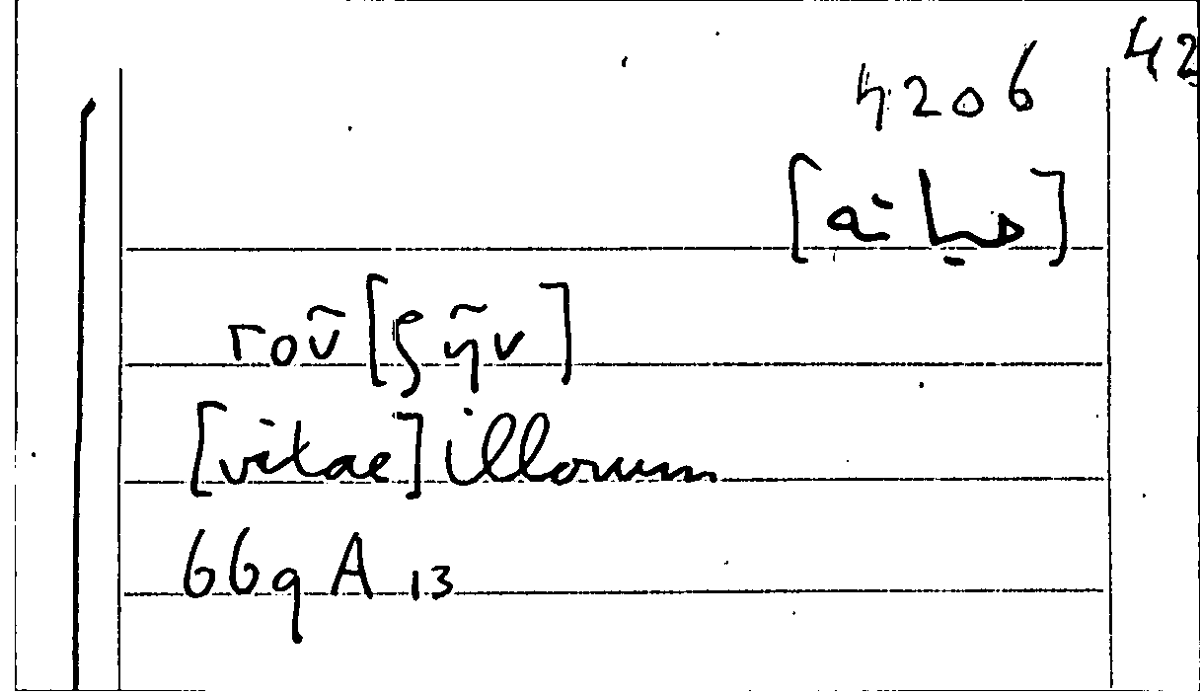 42
4206
τοῦ [ζῆν]
[vitae] illorum
669 A 13